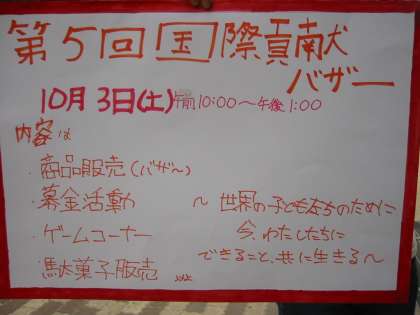 第5回国際貢献
バザー
10月3日(土)午前10:00～午後1:00
内容は
・商品販売(バザー)
・募金活動
・ゲームコーナー
・駄菓子販売 など
～世界の子ども太ちのために
今、わたしたちに
できること、共に生きる～